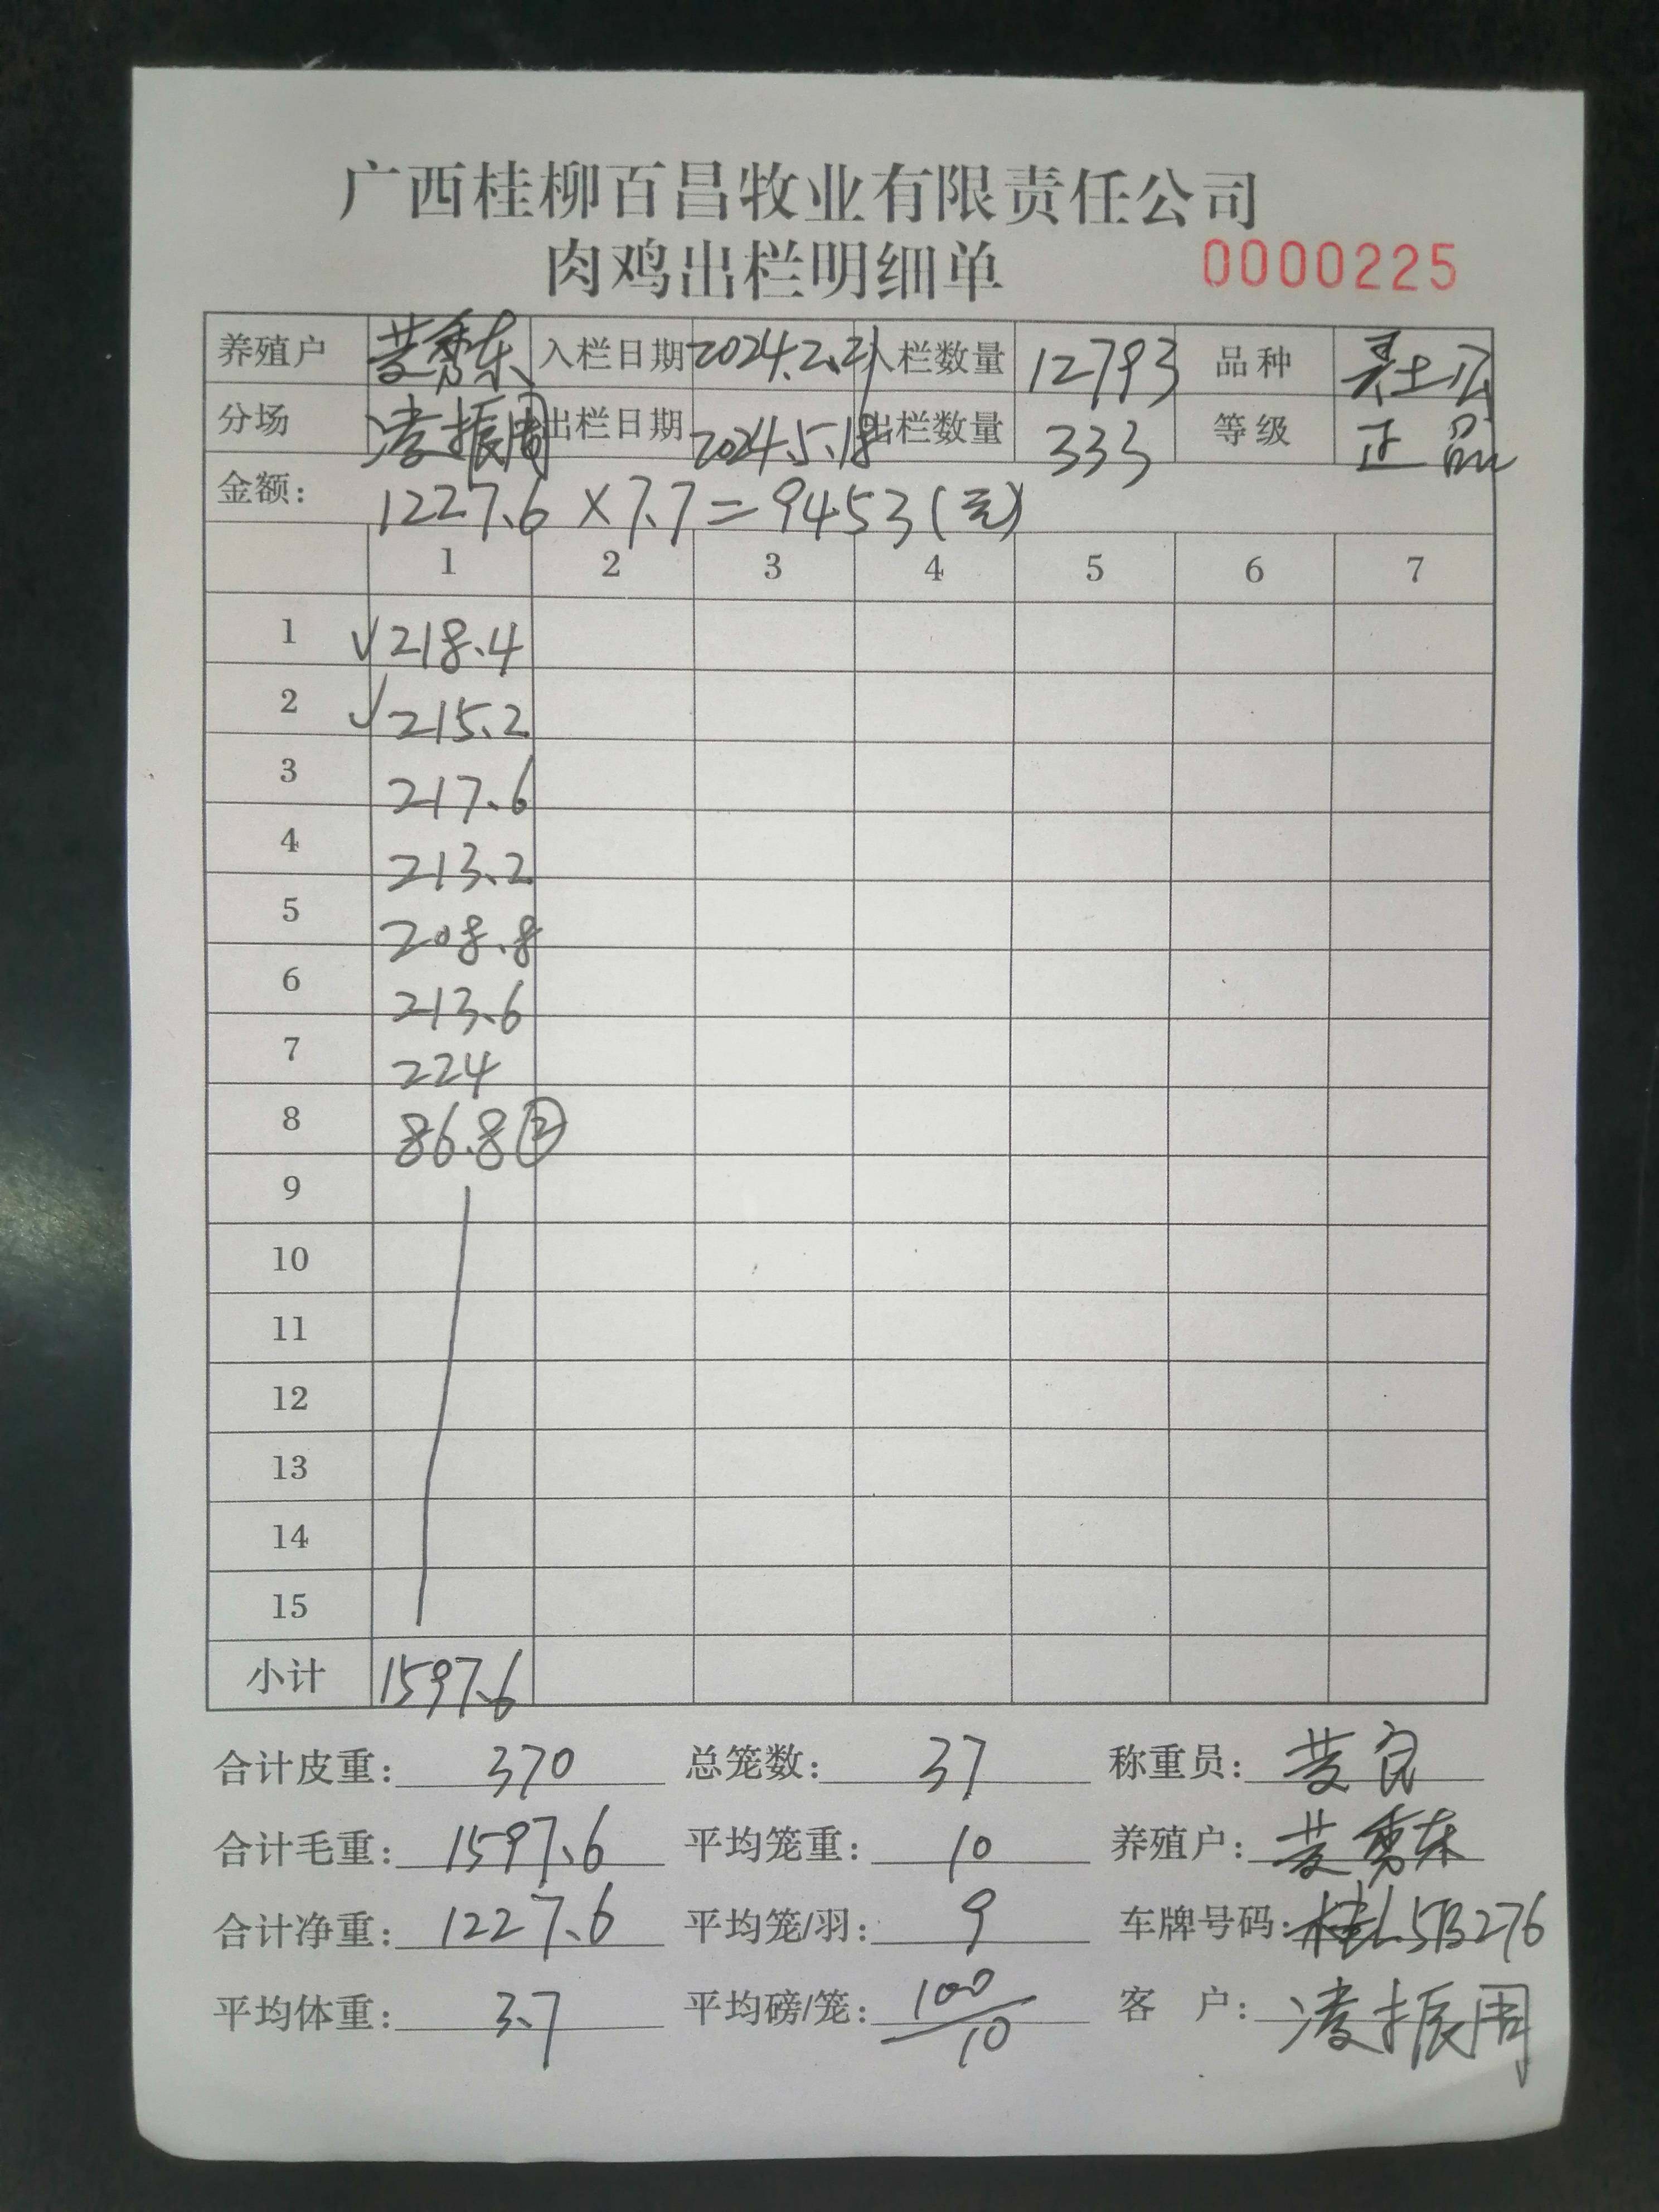 广西桂柳百昌牧业有限责任公司
肉鸡出栏明细单 0000225
养殖户 入栏日期 2024.2.21 入栏数量 12793 品种 土公
分场 凌振周 出栏日期 2024.5.18 出栏数量 333 等级 正品
金额: 1227.6×7.7=9453(元)
1 2 3 4 5 6 7
1 √218.4
2 √215.2
3 217.6
4 213.2
5 208.8
6 213.6
7 224
8 86.8②
9
10
11
12
13
14
15
小计 1597.6
合计皮重: 370 总笼数: 37 称重员:
合计毛重: 1597.6 平均笼重: 10 养殖户:
合计净重: 1227.6 平均笼/羽: 9 车牌号码: 桂L5B276
平均体重: 3.7 平均磅/笼: 100/10 客户: 凌振周